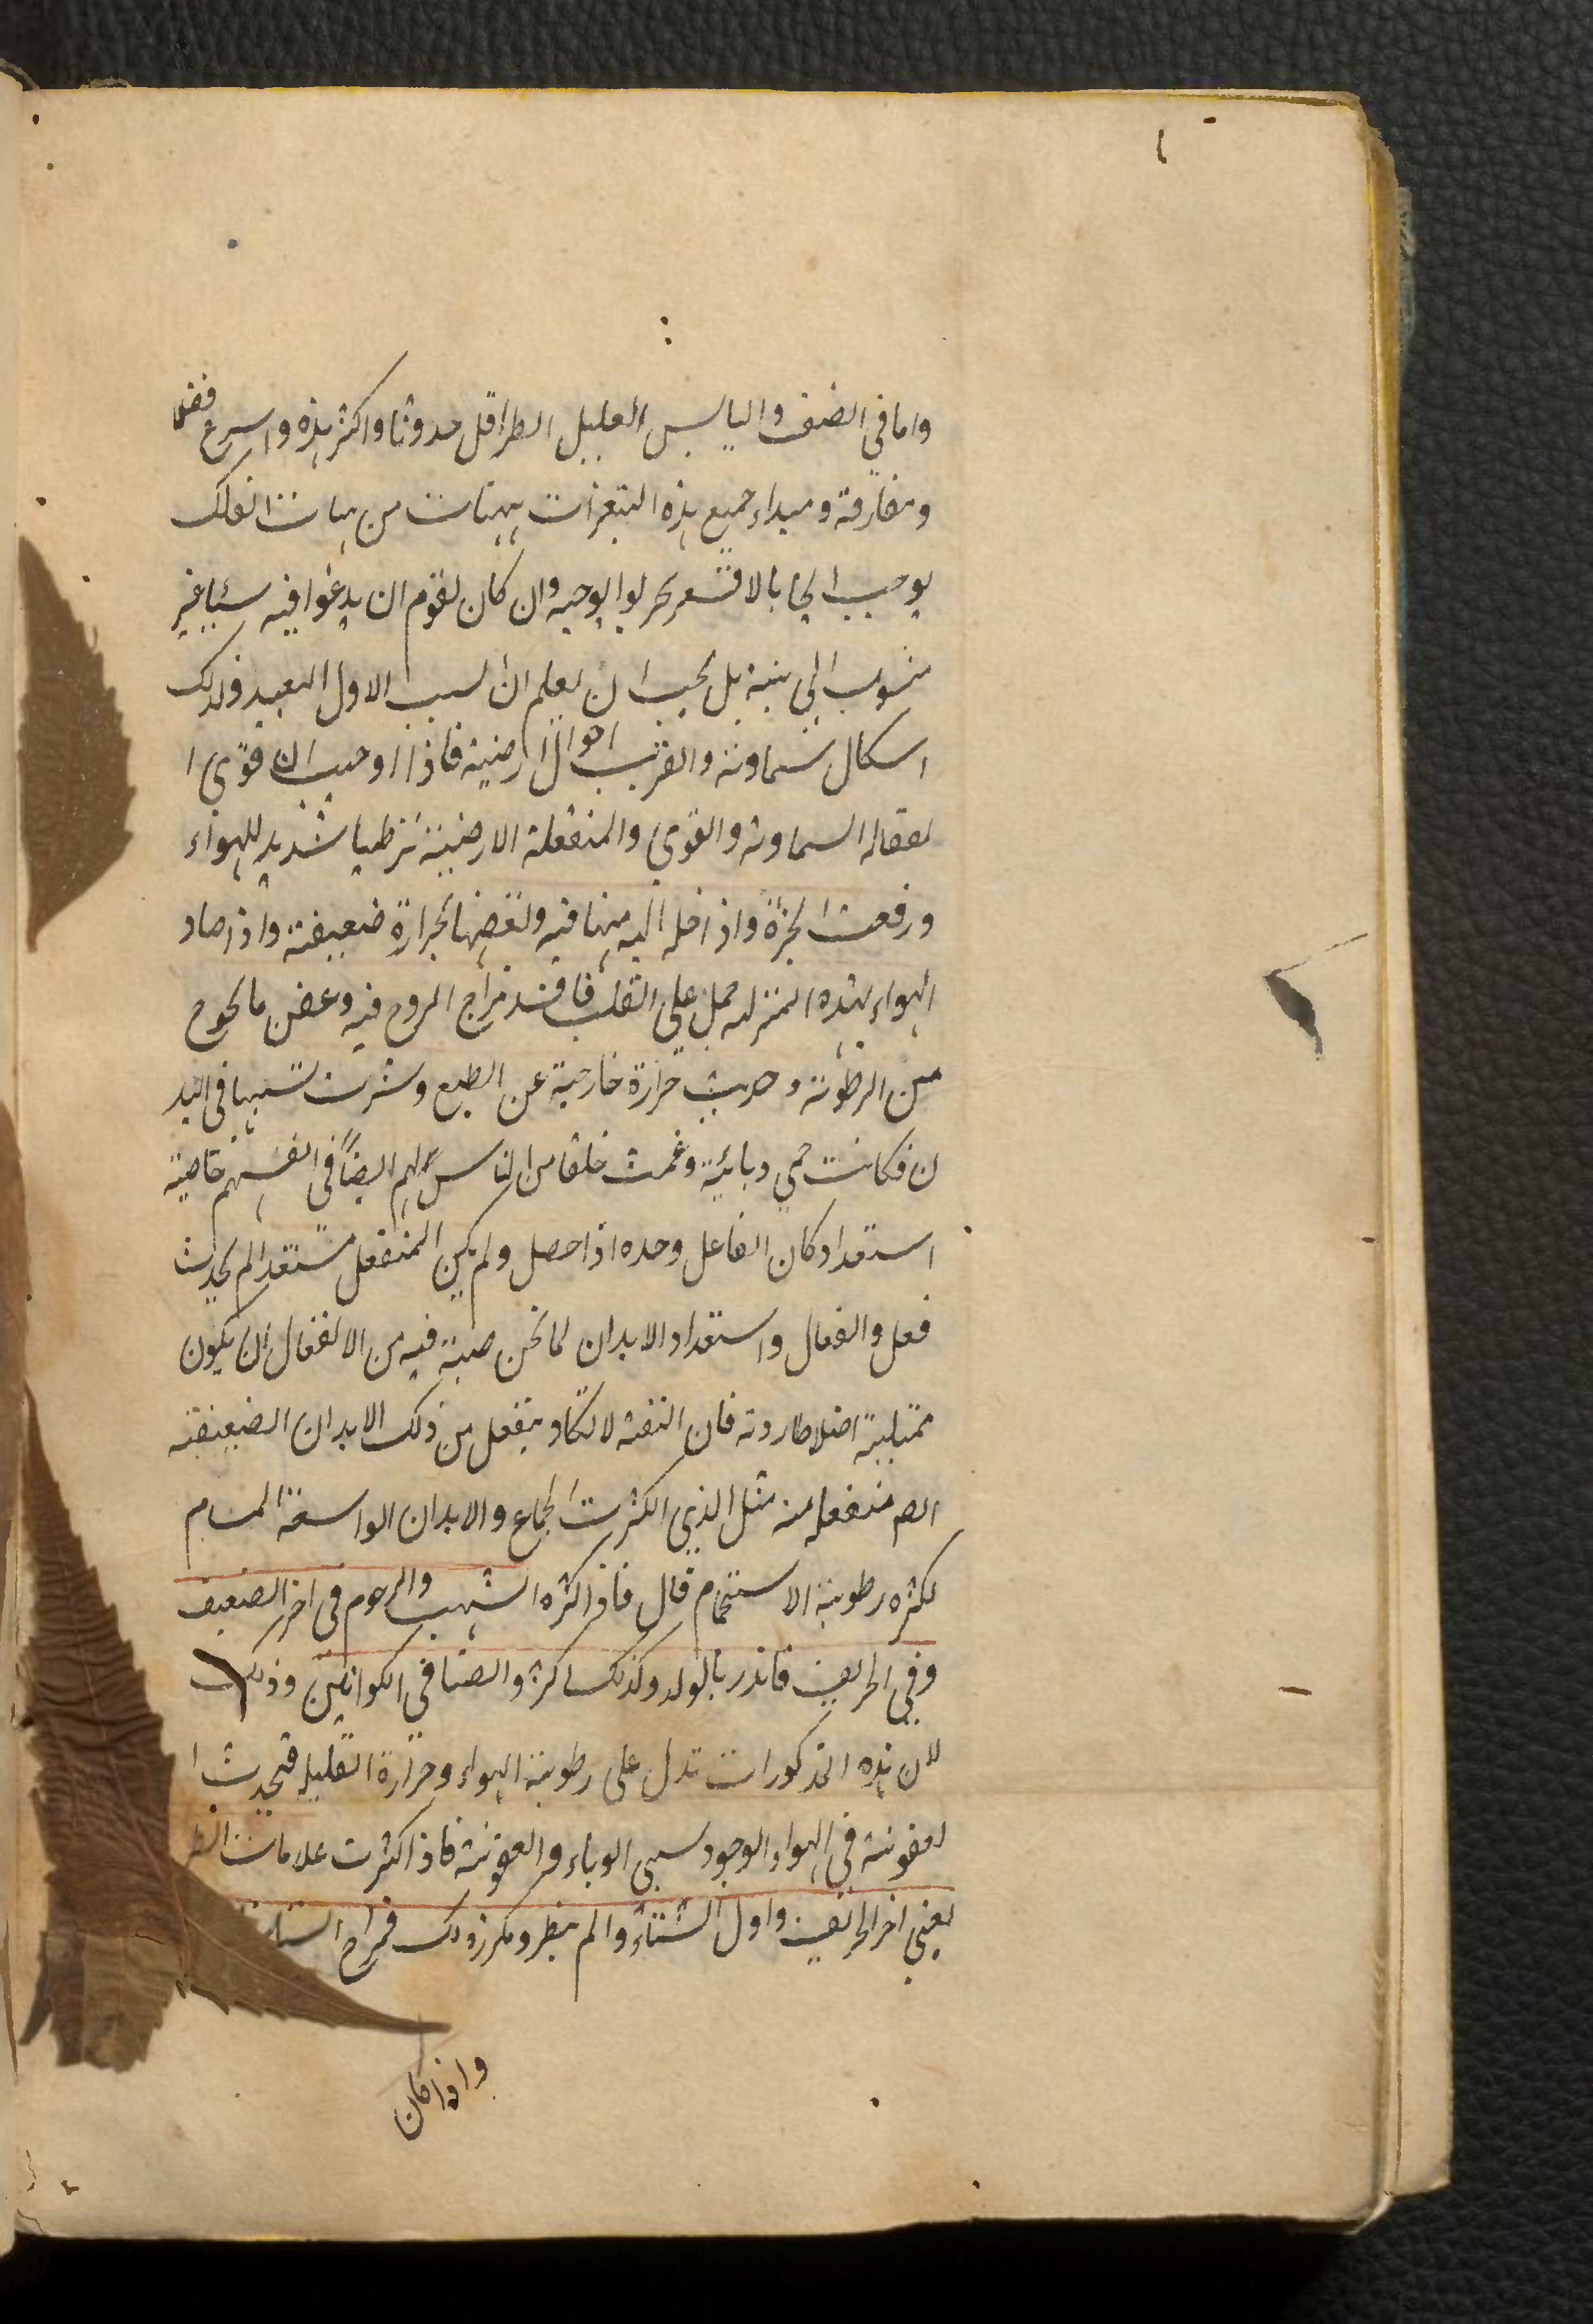 واما في الصيف واليابس القليل المطر اقل حدوثا واكثر هذه واسرع فضلا
ومفارقة ومبداء جميع هذه التغيرات هيئات من هيات الفلك
يوجب ايجابا لا نشعر نحن لوا بوجبه وان كان لقوم ان يدعوا فيه شيئا غير
منسوب الى بينة بل يجب ان يعلم ان السبب الاول البعيد لذلك
اشكال سماوية والقريب احوال ارضية فاذا اوجب ان قوى ا
لفعاله السماوية والقوى والمنفعلة الارضية ترطيبا شديد للهواء
ورفعت ابخرة وادخله اليه مبها فيه ولعفنها بحرارة ضعيفة واذا صار
الهواء بهذه المنزله حمل على القلب فافسد مزاج الروح فيه وعفن ما يحوح
من الرطوبة وحدث حرارة خارجية عن الطبع وسرت سببها في البد
ن فكانت حمى وبائية وعمت خلقا من الناس لهم ايضاً في انفسهم خاصية
استعداد كان الفاعل وحده اذا حصل ولم يكن المنفعل مستعدا لم يحدث
فعل وانفعال واستعداد الابدان لما نحن صبة فيه من الانفعال ان يكون
ممتلية اخلاطا ردية فان النقية لا تكاد ينفعل من ذلك الابدان الضعيفة
ايضا منفعله منه مثل الذي اكثرت الجماع والابدان الواسعة المسام
لكثره رطوبة الاستحمام قال فاذا كثره الشهب والرجوم في اخر الصيف
وفي الخريف فانذر بالولد وكذلك اكثر والصبا في الكوانين وذلك
لان هذه المذكورات تدل على رطوبة الهواء وحرارة القليله فيحدث ا
لعفونة في الهواء الوجود سبى الوباء والعفونة فاذا كثرت علامات المطر
يعني اخر الخريف واول الشتاء والم يمطر وتكرر ذلك فمزاج الشتا
واذا كان